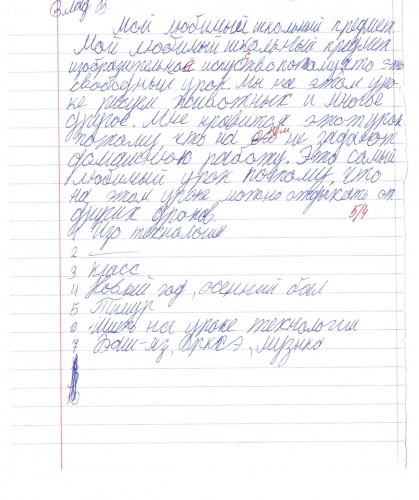 Влад В
Мой любимый школьный предмет
Мой любимый школьный предмет
изобразительноа искуство потому что это
свободный урок. Мы на этом уро-
ке рисуем животных и многое
другое. Мне нравится этот урок
потому, что на нём не задают
домашнюю работу. Это самый
любимый урок потому, что
на этом уроке можно отдыхать от
других уроков.
5/4
1 Изо технология
2 —
3 класс
4 Новый год, осенний бал
5 Тимур
6 Шить на уроке технологии
7 Баш-яз, Орксэ, музыка